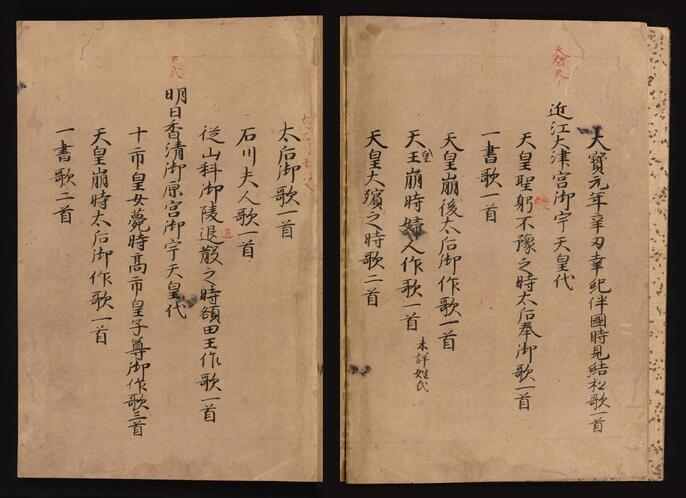 大寶元年辛丑幸紀伊國時見結松歌一首
天智天
近江大津宮御宇天皇代
天皇聖躬不豫之時太后奉御歌一首
一書歌一首
天皇崩後太后御作歌一首
天王崩時婦人作歌一首 未詳姓氏
皇
天皇大殯之時歌二首
太后御歌一首
石川夫人歌一首
從山科御陵退散之時額田王作歌一首
退
明日香清御原宮御宇天皇代
十市皇女薨時高市皇子尊御作歌三首
天皇崩時太后御作歌一首
一書歌二首